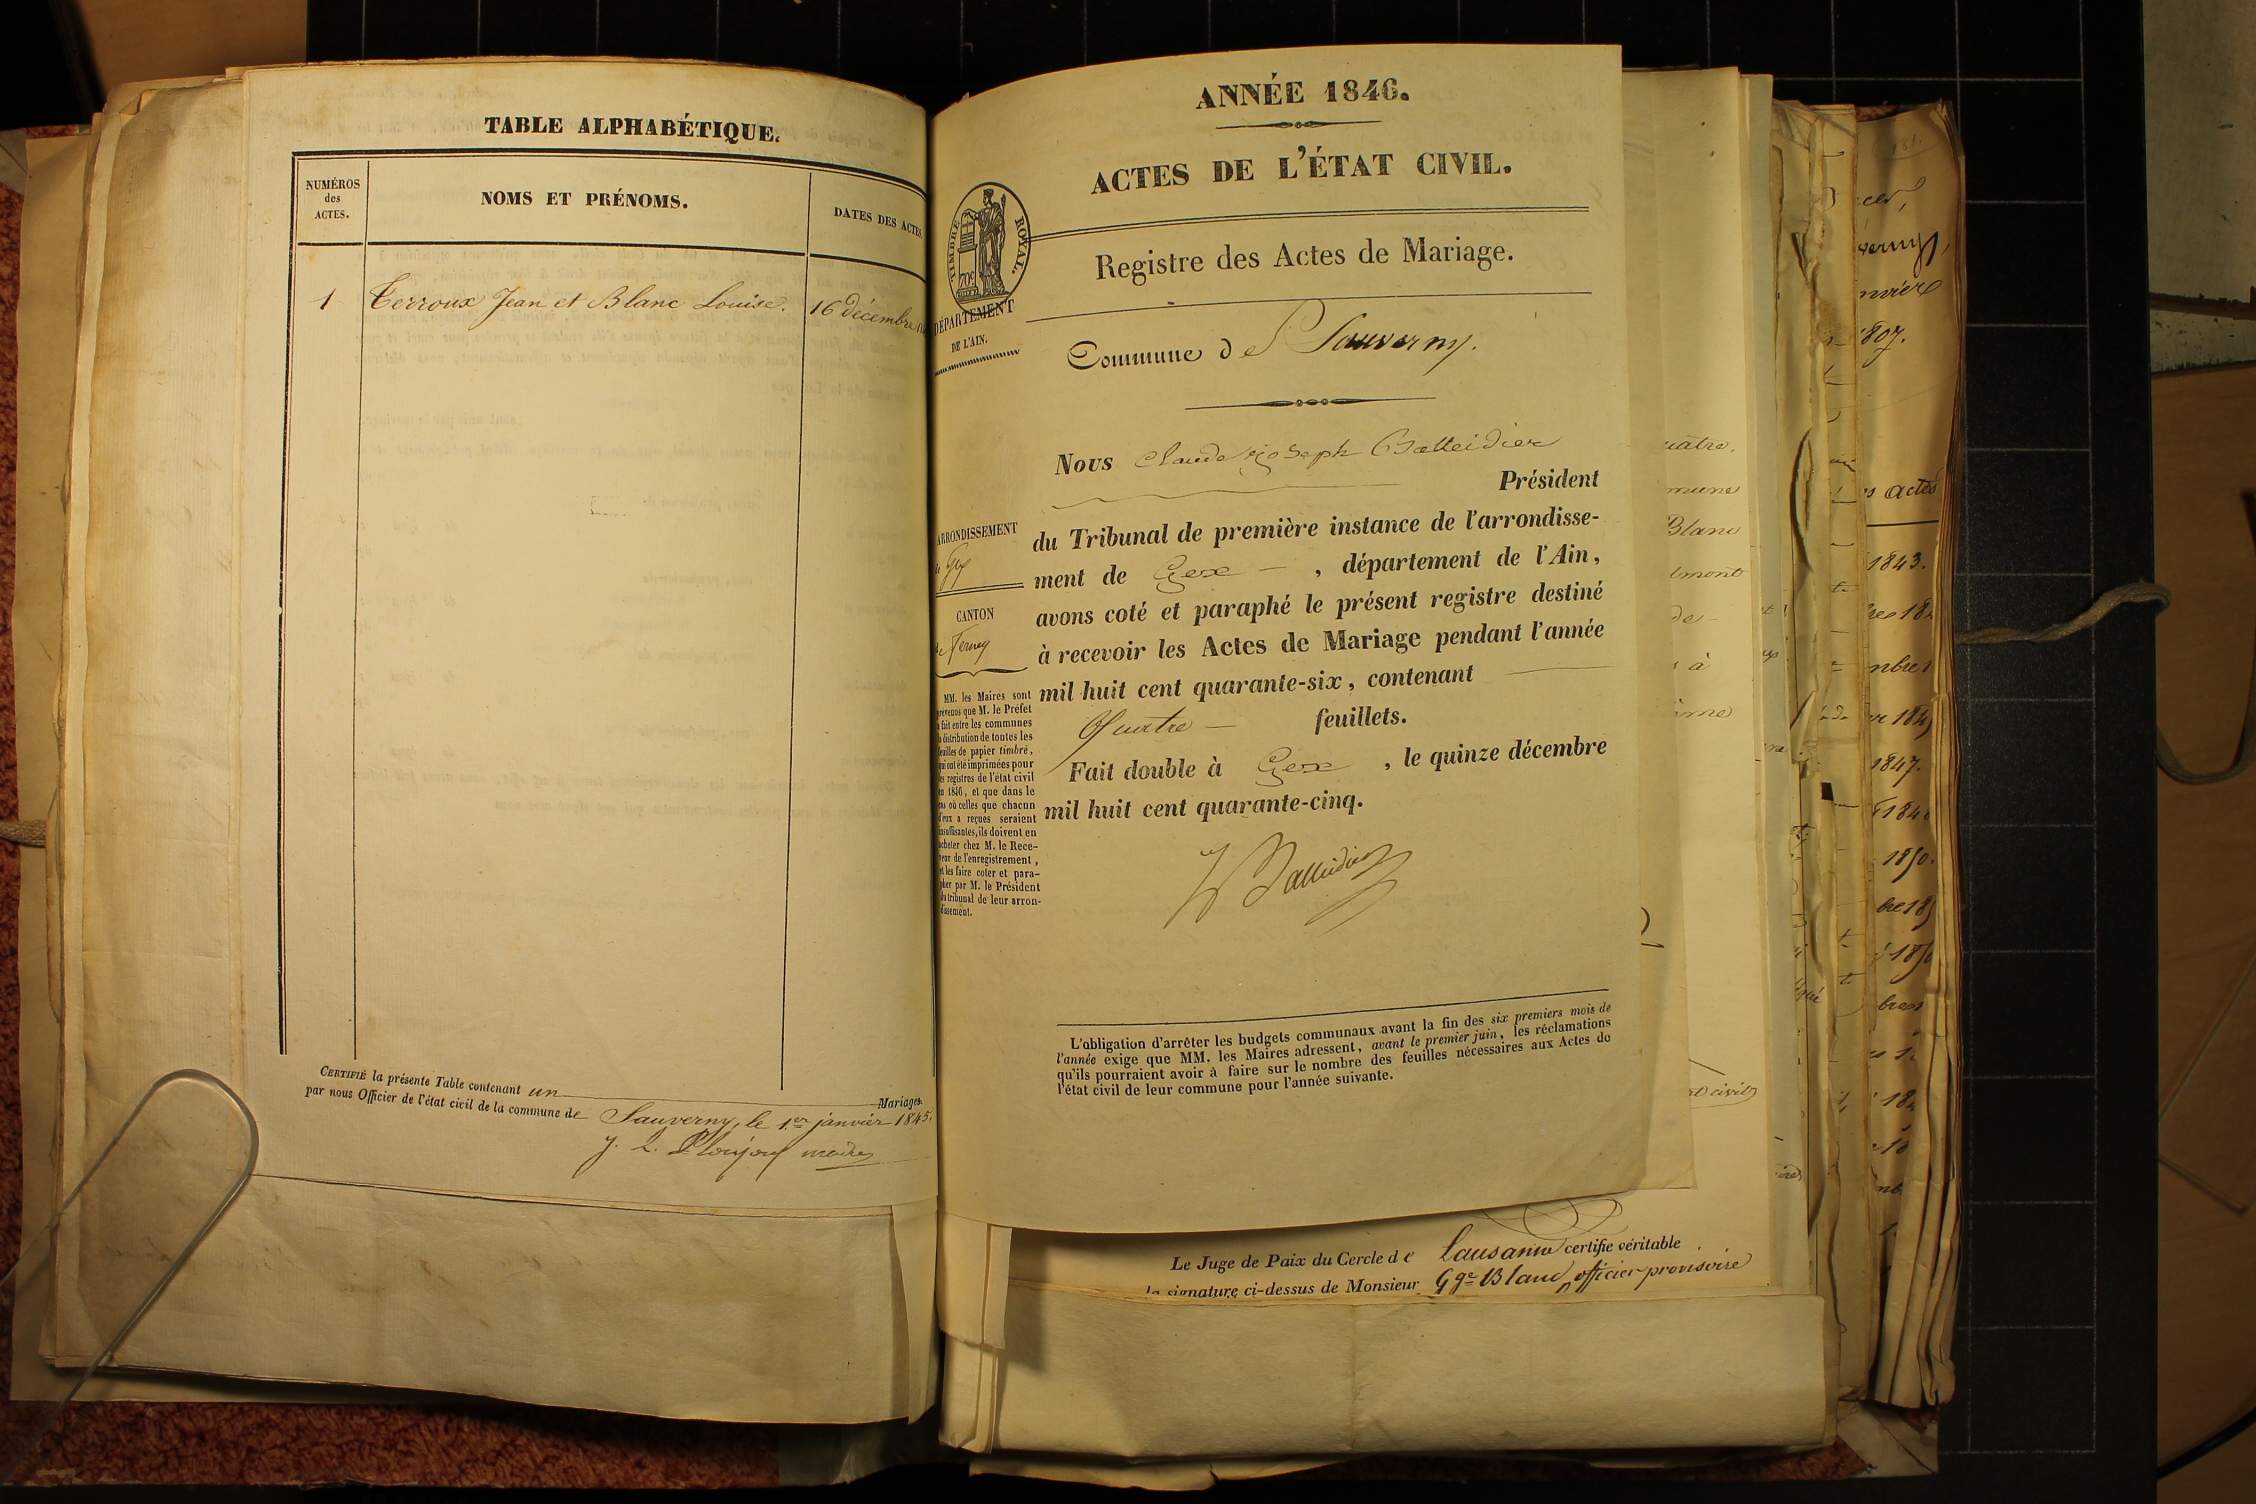 TABLE ALPHABÉTIQUE.
NUMÉROS
des
ACTES.
NOMS ET PRÉNOMS.
DATES DES ACTES
1
Terroux Jean et Blanc Louise.
16 décembre
CERTIFIÉ la présente Table contenant un Mariages.
par nous Officier de l'état civil de la commune de Sauverny, le 1er janvier 1845.
J. L. maire
ANNÉE 1846.
ACTES DE L'ÉTAT CIVIL.
TIMBRE ROYAL.
70c
DÉPARTEMENT
DE L'AIN.
Registre des Actes de Mariage.
Commune de Sauverny.
Nous Claude Joseph Balleidier
Président
ARRONDISSEMENT
de Gex
CANTON
de Ferney
du Tribunal de première instance de l'arrondisse-
ment de Gex , département de l'Ain,
avons coté et paraphé le présent registre destiné
à recevoir les Actes de Mariage pendant l'année
mil huit cent quarante-six, contenant
Quatre feuillets.
Fait double à Gex , le quinze décembre
mil huit cent quarante-cinq.
Balleidier
MM. les Maires sont
prévenus que M. le Préfet
a fait entre les communes
la distribution de toutes les
feuilles de papier timbré,
qui ont été imprimées pour
les registres de l'état civil
en 1846, et que dans le
cas où celles que chacun
d'eux a reçues seraient
insuffisantes, ils doivent en
acheter chez M. le Rece-
veur de l'enregistrement,
et les faire coter et para-
pher par M. le Président
du tribunal de leur arron-
dissement.
L'obligation d'arrêter les budgets communaux avant la fin des six premiers mois de
l'année exige que MM. les Maires adressent, avant le premier juin, les réclamations
qu'ils pourraient avoir à faire sur le nombre des feuilles nécessaires aux Actes de
l'état civil de leur commune pour l'année suivante.
Le Juge de Paix du Cercle de Lausanne certifie véritable
la signature ci-dessus de Monsieur Gge Blanc officier provisoire
Blanc
à
civil
1807.
actes
1843.
1847.
1850.